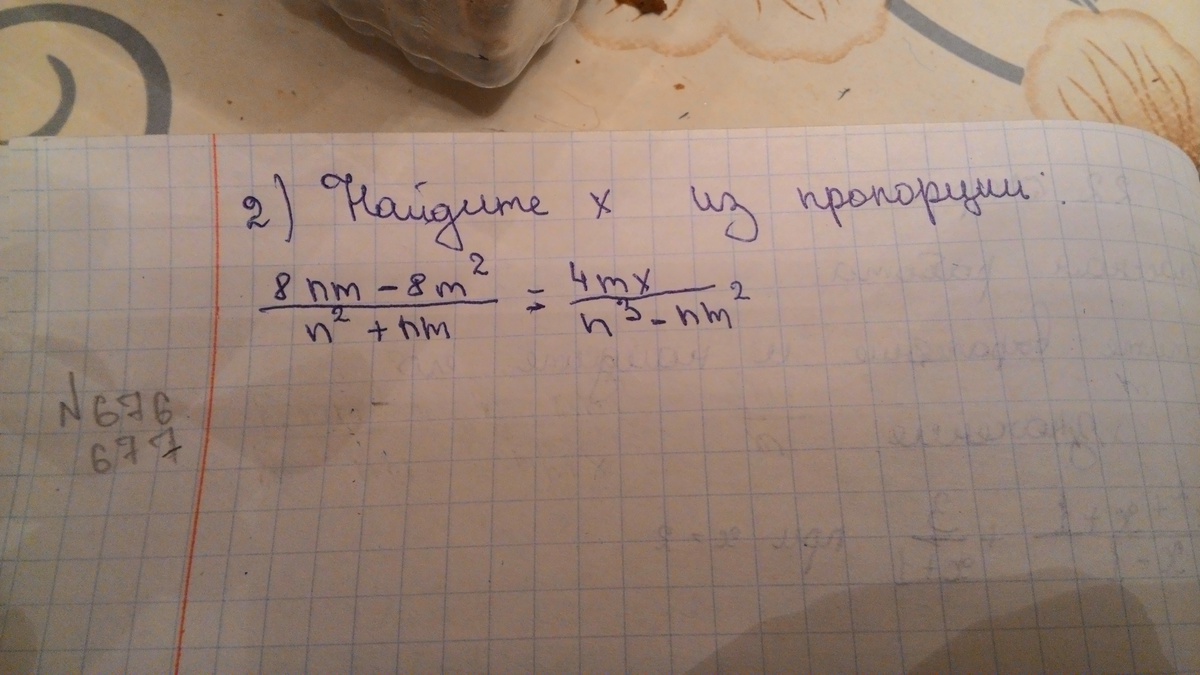 2) Найдите x из пропорции:
8nm - 8m² / n² + nm = 4mx / n³ - nm²
N 676
677
при x = 2